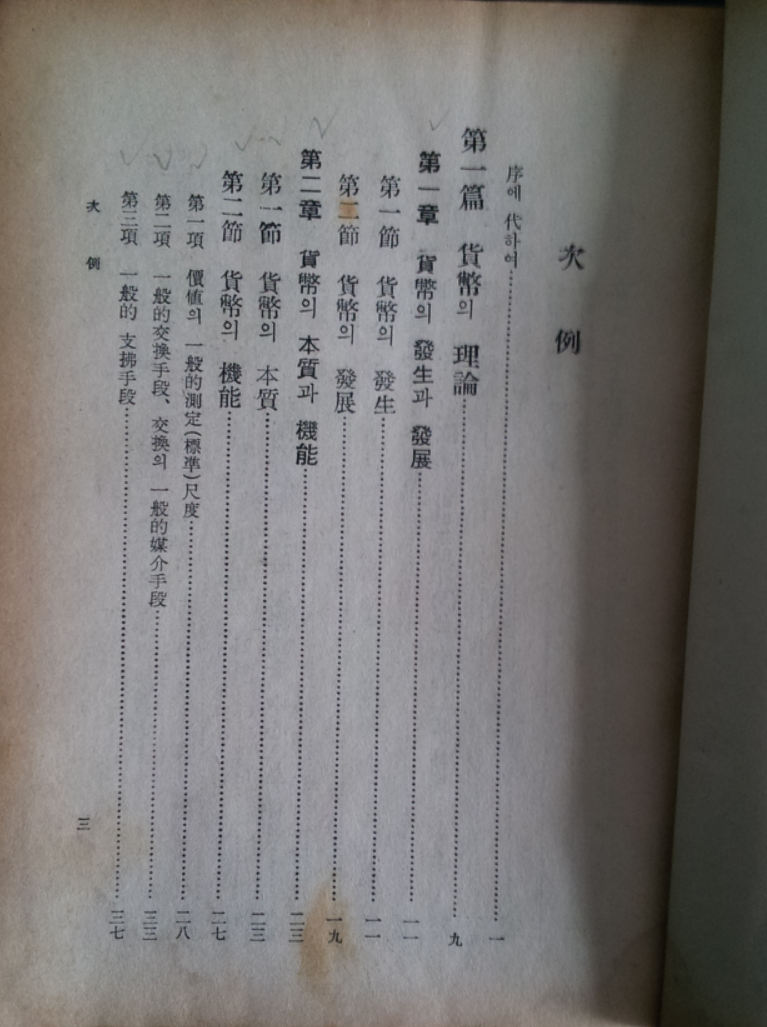 次例
序에 代하여……一
第一篇 貨幣의 理論……九
第一章 貨幣의 發生과 發展……一一
第一節 貨幣의 發生……一一
第二節 貨幣의 發展……一九
第二章 貨幣의 本質과 機能……二三
第一節 貨幣의 本質……二三
第二節 貨幣의 機能……二七
第一項 價値의 一般的測定(標準)尺度……二八
第二項 一般的交換手段、交換의 一般的媒介手段……三三
第三項 一般的 支拂手段……三七
次例
三